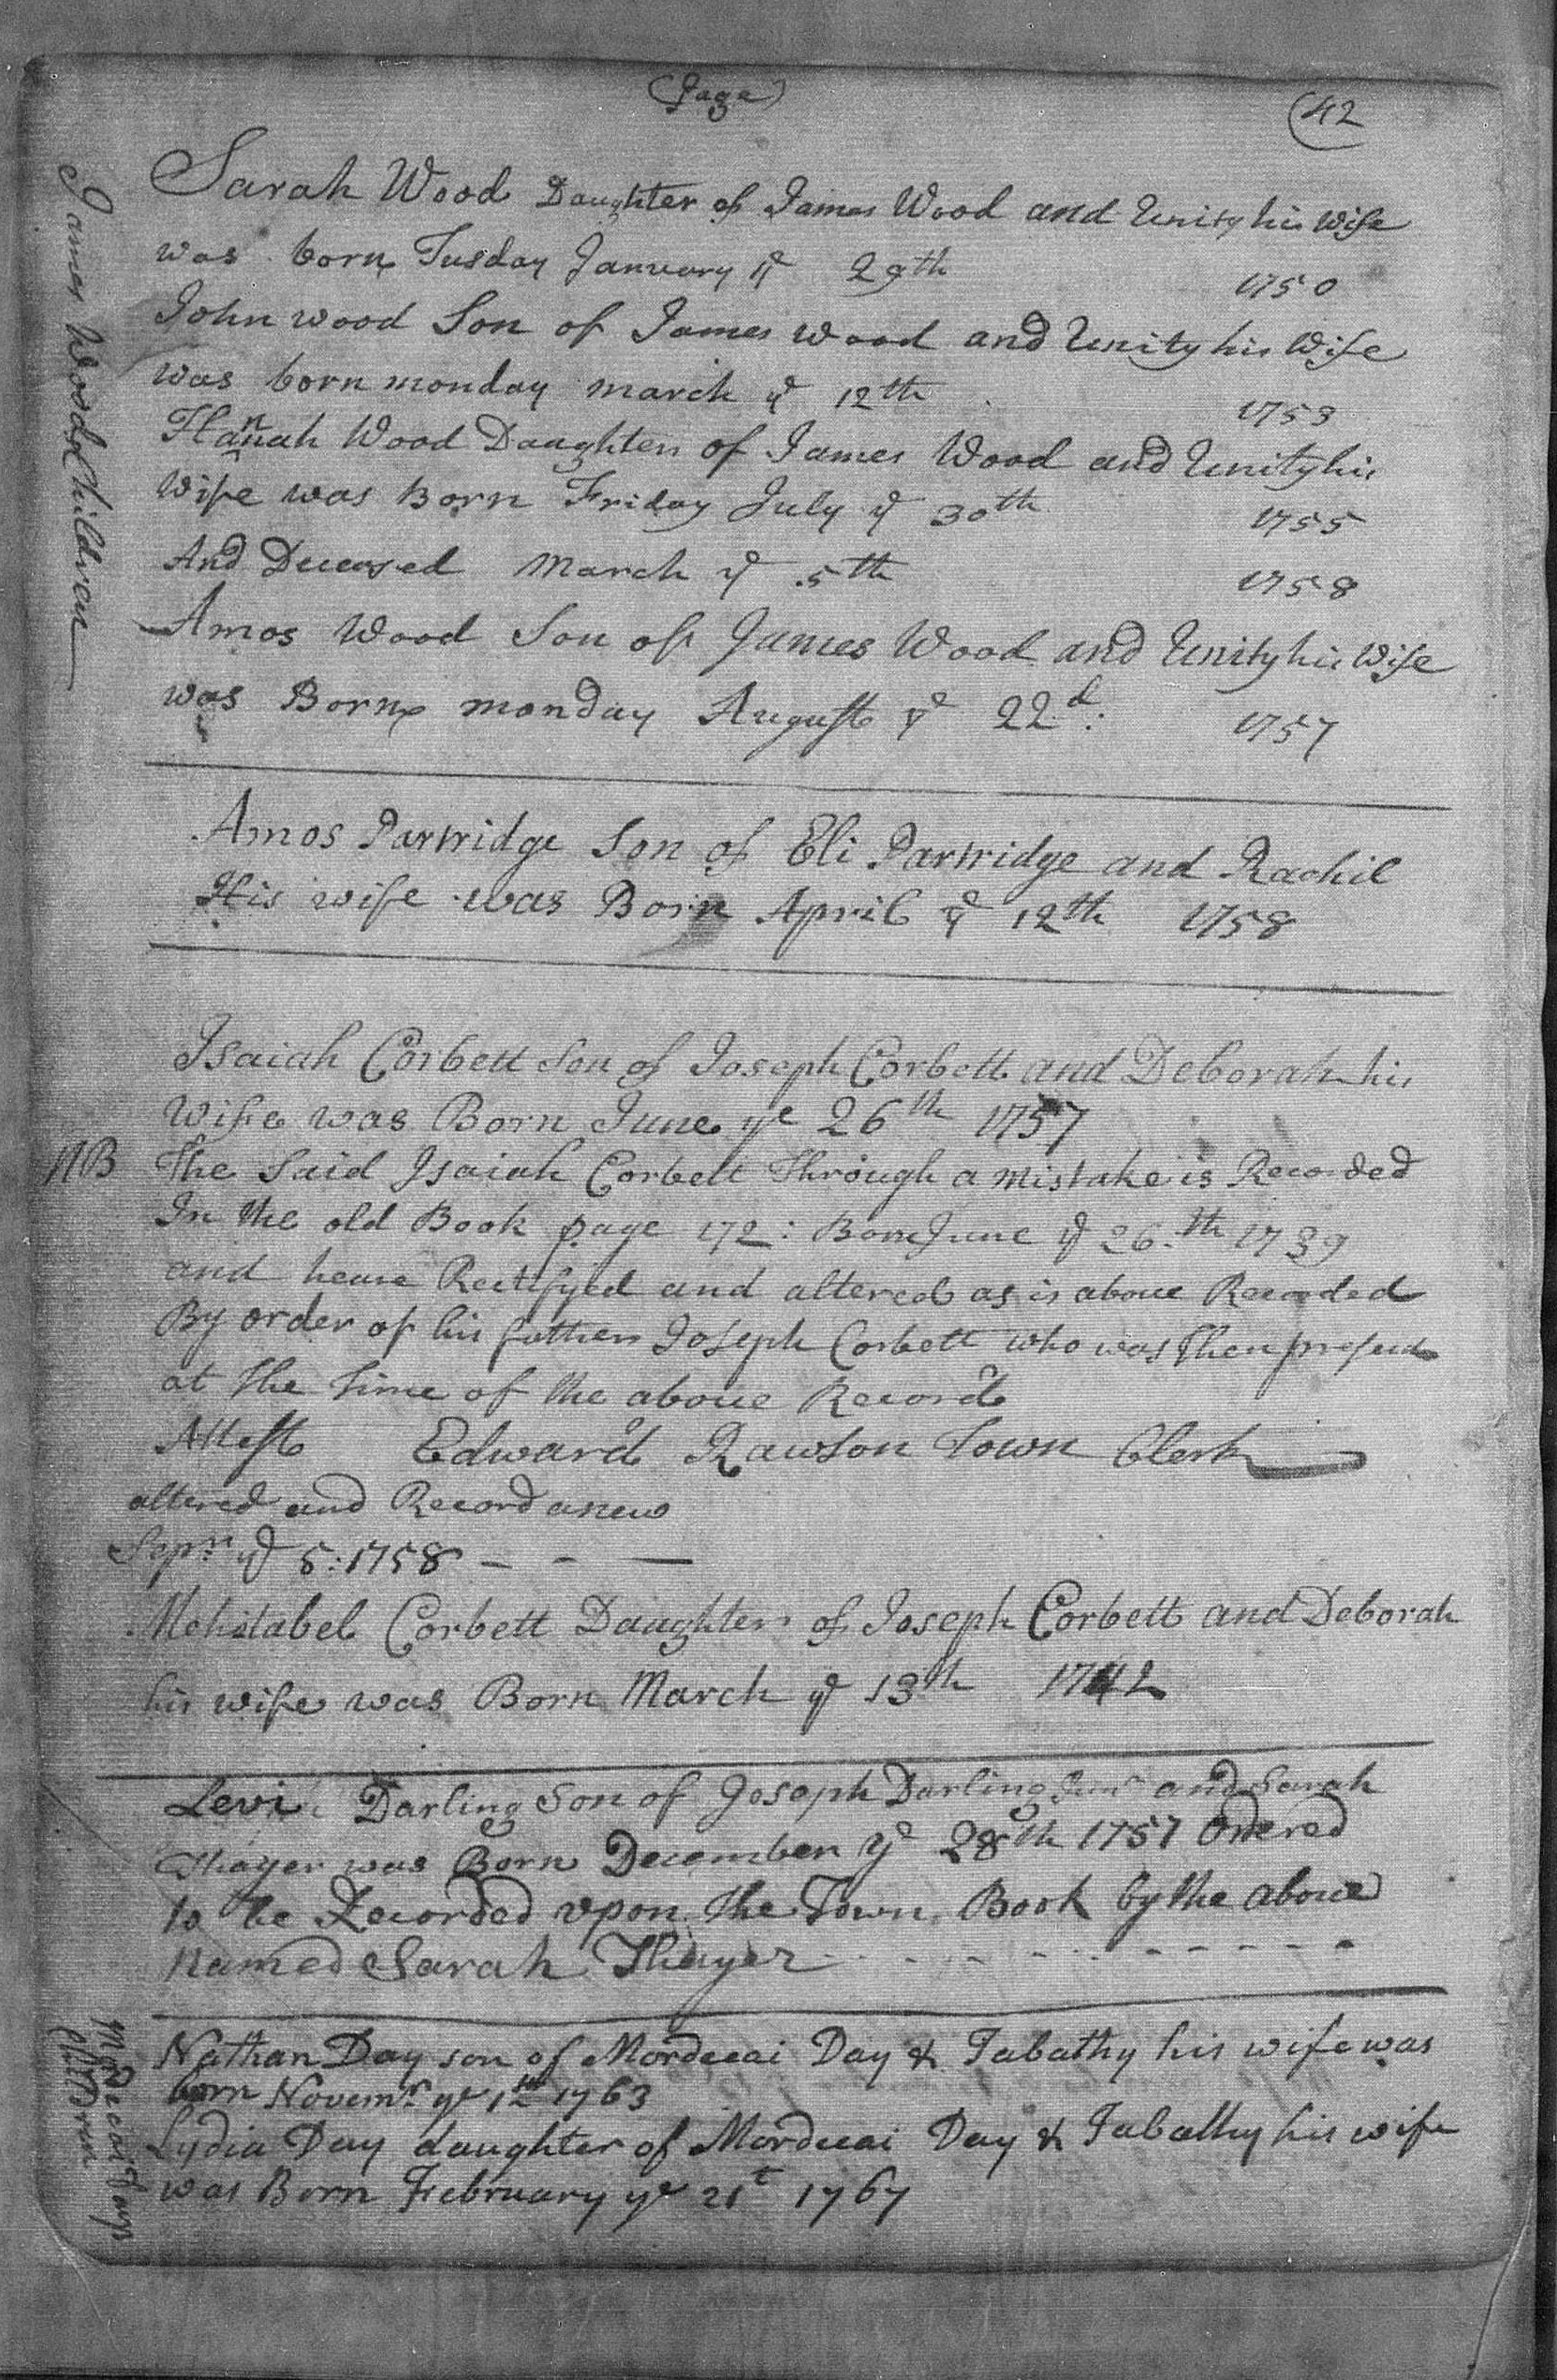 (Page)
(42
James Woods Children
Sarah Wood Daughter of James Wood and Unity his wife
was born Tusday January ye 29th 1750
John wood Son of James wood and Unity his Wife
was born monday march ye 12th 1753
Hanah Wood Daughter of James Wood and Unity his
Wife was Born Friday July ye 30th 1755
And Deceased March ye 5th 1758
Amos Wood Son of James Wood and Unity his Wife
was Born monday August ye 22d: 1757
Amos Partridge Son of Eli Partridge and Rachil
His wife was Born April ye 12th 1758
Isaiah Corbett Son of Joseph Corbett and Deborah his
Wife was Born June ye 26th 1757
NB The Said Isaiah Corbett Through a mistake is Recorded
In the old Book page 172: Born June ye 26th 1739
and heare Rectifyed and altered as is above Recorded
By order of his father Joseph Corbett who was then present
at the time of the above Record
Attest Edward Rawson Town Clerk
altered and Record anew
Sepr ye 5: 1758 - - -
Mehitabel Corbett Daughter of Joseph Corbett and Deborah
his wife was Born March ye 13th 1742
Levi Darling Son of Joseph Darling Junr and Sarah
Thayer was Born December ye 28th 1757 Ordered
to be Recorded upon the Town Book by the above
named Sarah Thayer - - - - - - - - - -
Mordecai Days Children
Nathan Day son of Mordecai Day & Tabathy his wife was
born Novemr ye 1st 1763
Lydia Day daughter of Mordecai Day & Tabathy his wife
was Born February ye 21t 1767